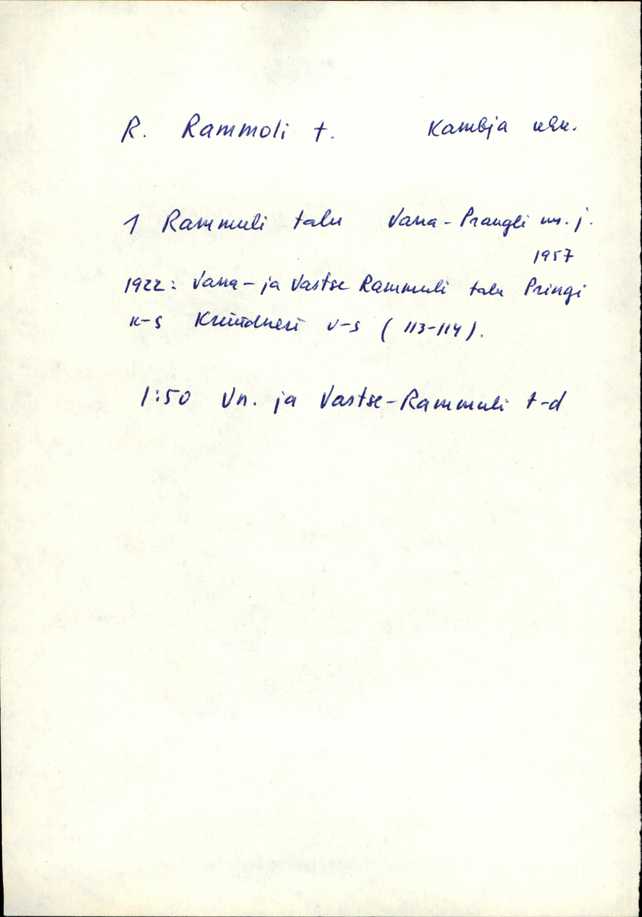 R. Rammoli t. Kambja khk.
1 Rammuli talu Vana-Prangli as. j.
1957
1922: Vana- ja Vastse Rammuli talu Pringi
k-s Krüüdneri v-s (113-114).
1:50 Vn. ja Vastse-Rammuli t-d